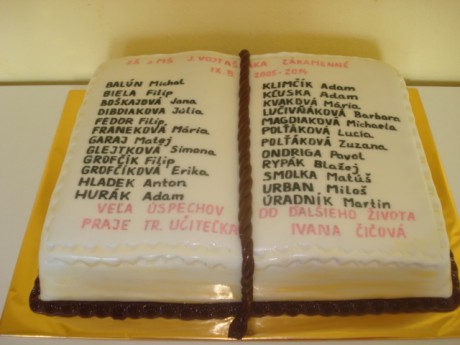 ZŠ s MŠ J. VOJTAŠŠÁKA ZÁKAMENNÉ
IX. B 2005-2014
BALÚN Michal
BIELA Filip
BOŠKAJOVÁ Jana
DIBDIAKOVÁ Júlia
FEDOR Filip
FRANEKOVÁ Mária
GARAJ Matej
GLEJTKOVÁ Simona
GROFČÍK Filip
GROFČÍKOVÁ Erika
HLADEK Anton
HURÁK Adam
KLIMČÍK Adam
KĽUSKA Adam
KVAKOVÁ Mária
LUČIVŇÁKOVÁ Barbora
MAGDIAKOVÁ Michaela
POLŤÁKOVÁ Lucia
POLŤÁKOVÁ Zuzana
ONDRIGA Pavol
RYPÁK Blažej
SMOLKA Matúš
URBAN Miloš
ÚRADNÍK Martin
VEĽA ÚSPECHOV DO ĎALŠIEHO ŽIVOTA
PRAJE TR. UČITEĽKA IVANA ČIČOVÁ